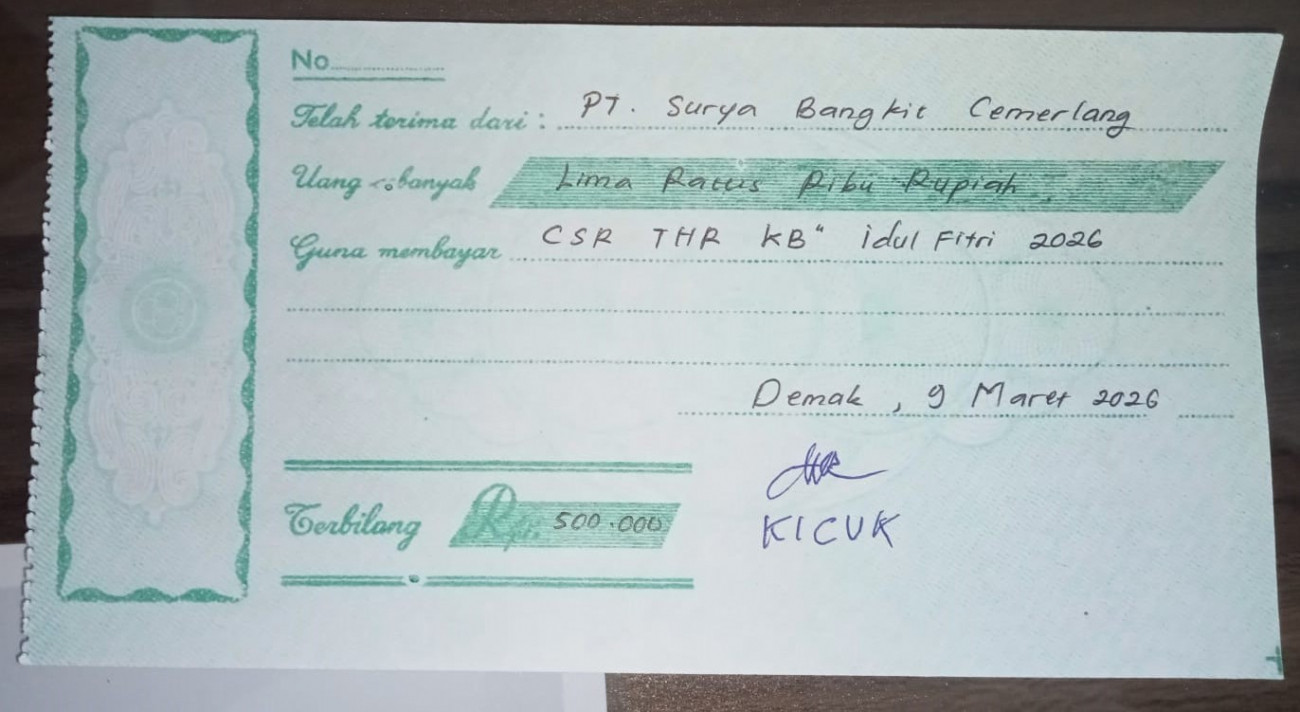 No.
Telah terima dari : PT. Surya Bangkit Cemerlang
Uang sebanyak Lima Ratus Ribu Rupiah
Guna membayar CSR THR KB" idul Fitri 2026
Demak, 9 Maret 2026
Terbilang Rp. 500.000
KICUK